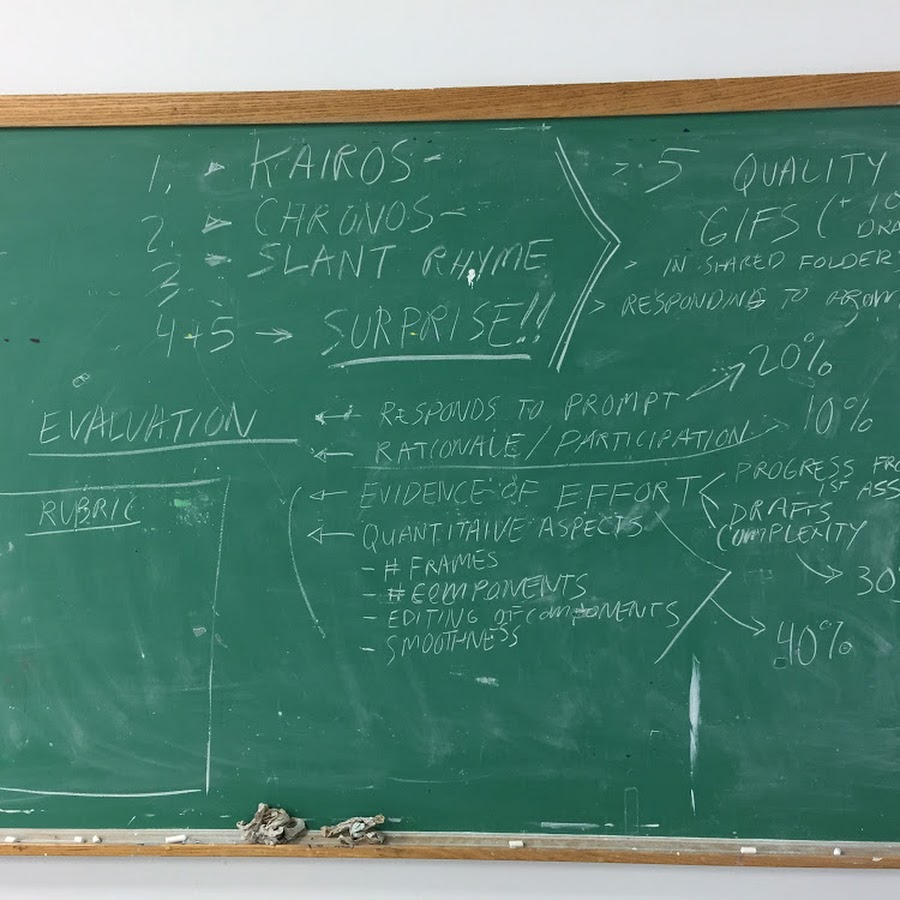 1. KAIROS-
2. CHRONOS-
3 SLANT RHYME
4+5 → SURPRISE!!
> 5 QUALITY
GIFS (+ 10
DRA
> IN SHARED FOLDERS
> RESPONDING TO PROM
EVALUATION
← RESPONDS TO PROMPT → 20%
← RATIONALE/PARTICIPATION 10%
← EVIDENCE OF EFFORT
PROGRESS FRO
1ST ASS
DRAFTS
COMPLEXITY
→ 30%
← QUANTITAIVE ASPECTS
- # FRAMES
- # COMPONENTS
- EDITING OF COMPONENTS
- SMOOTHNESS
→ 40%
RUBRIC